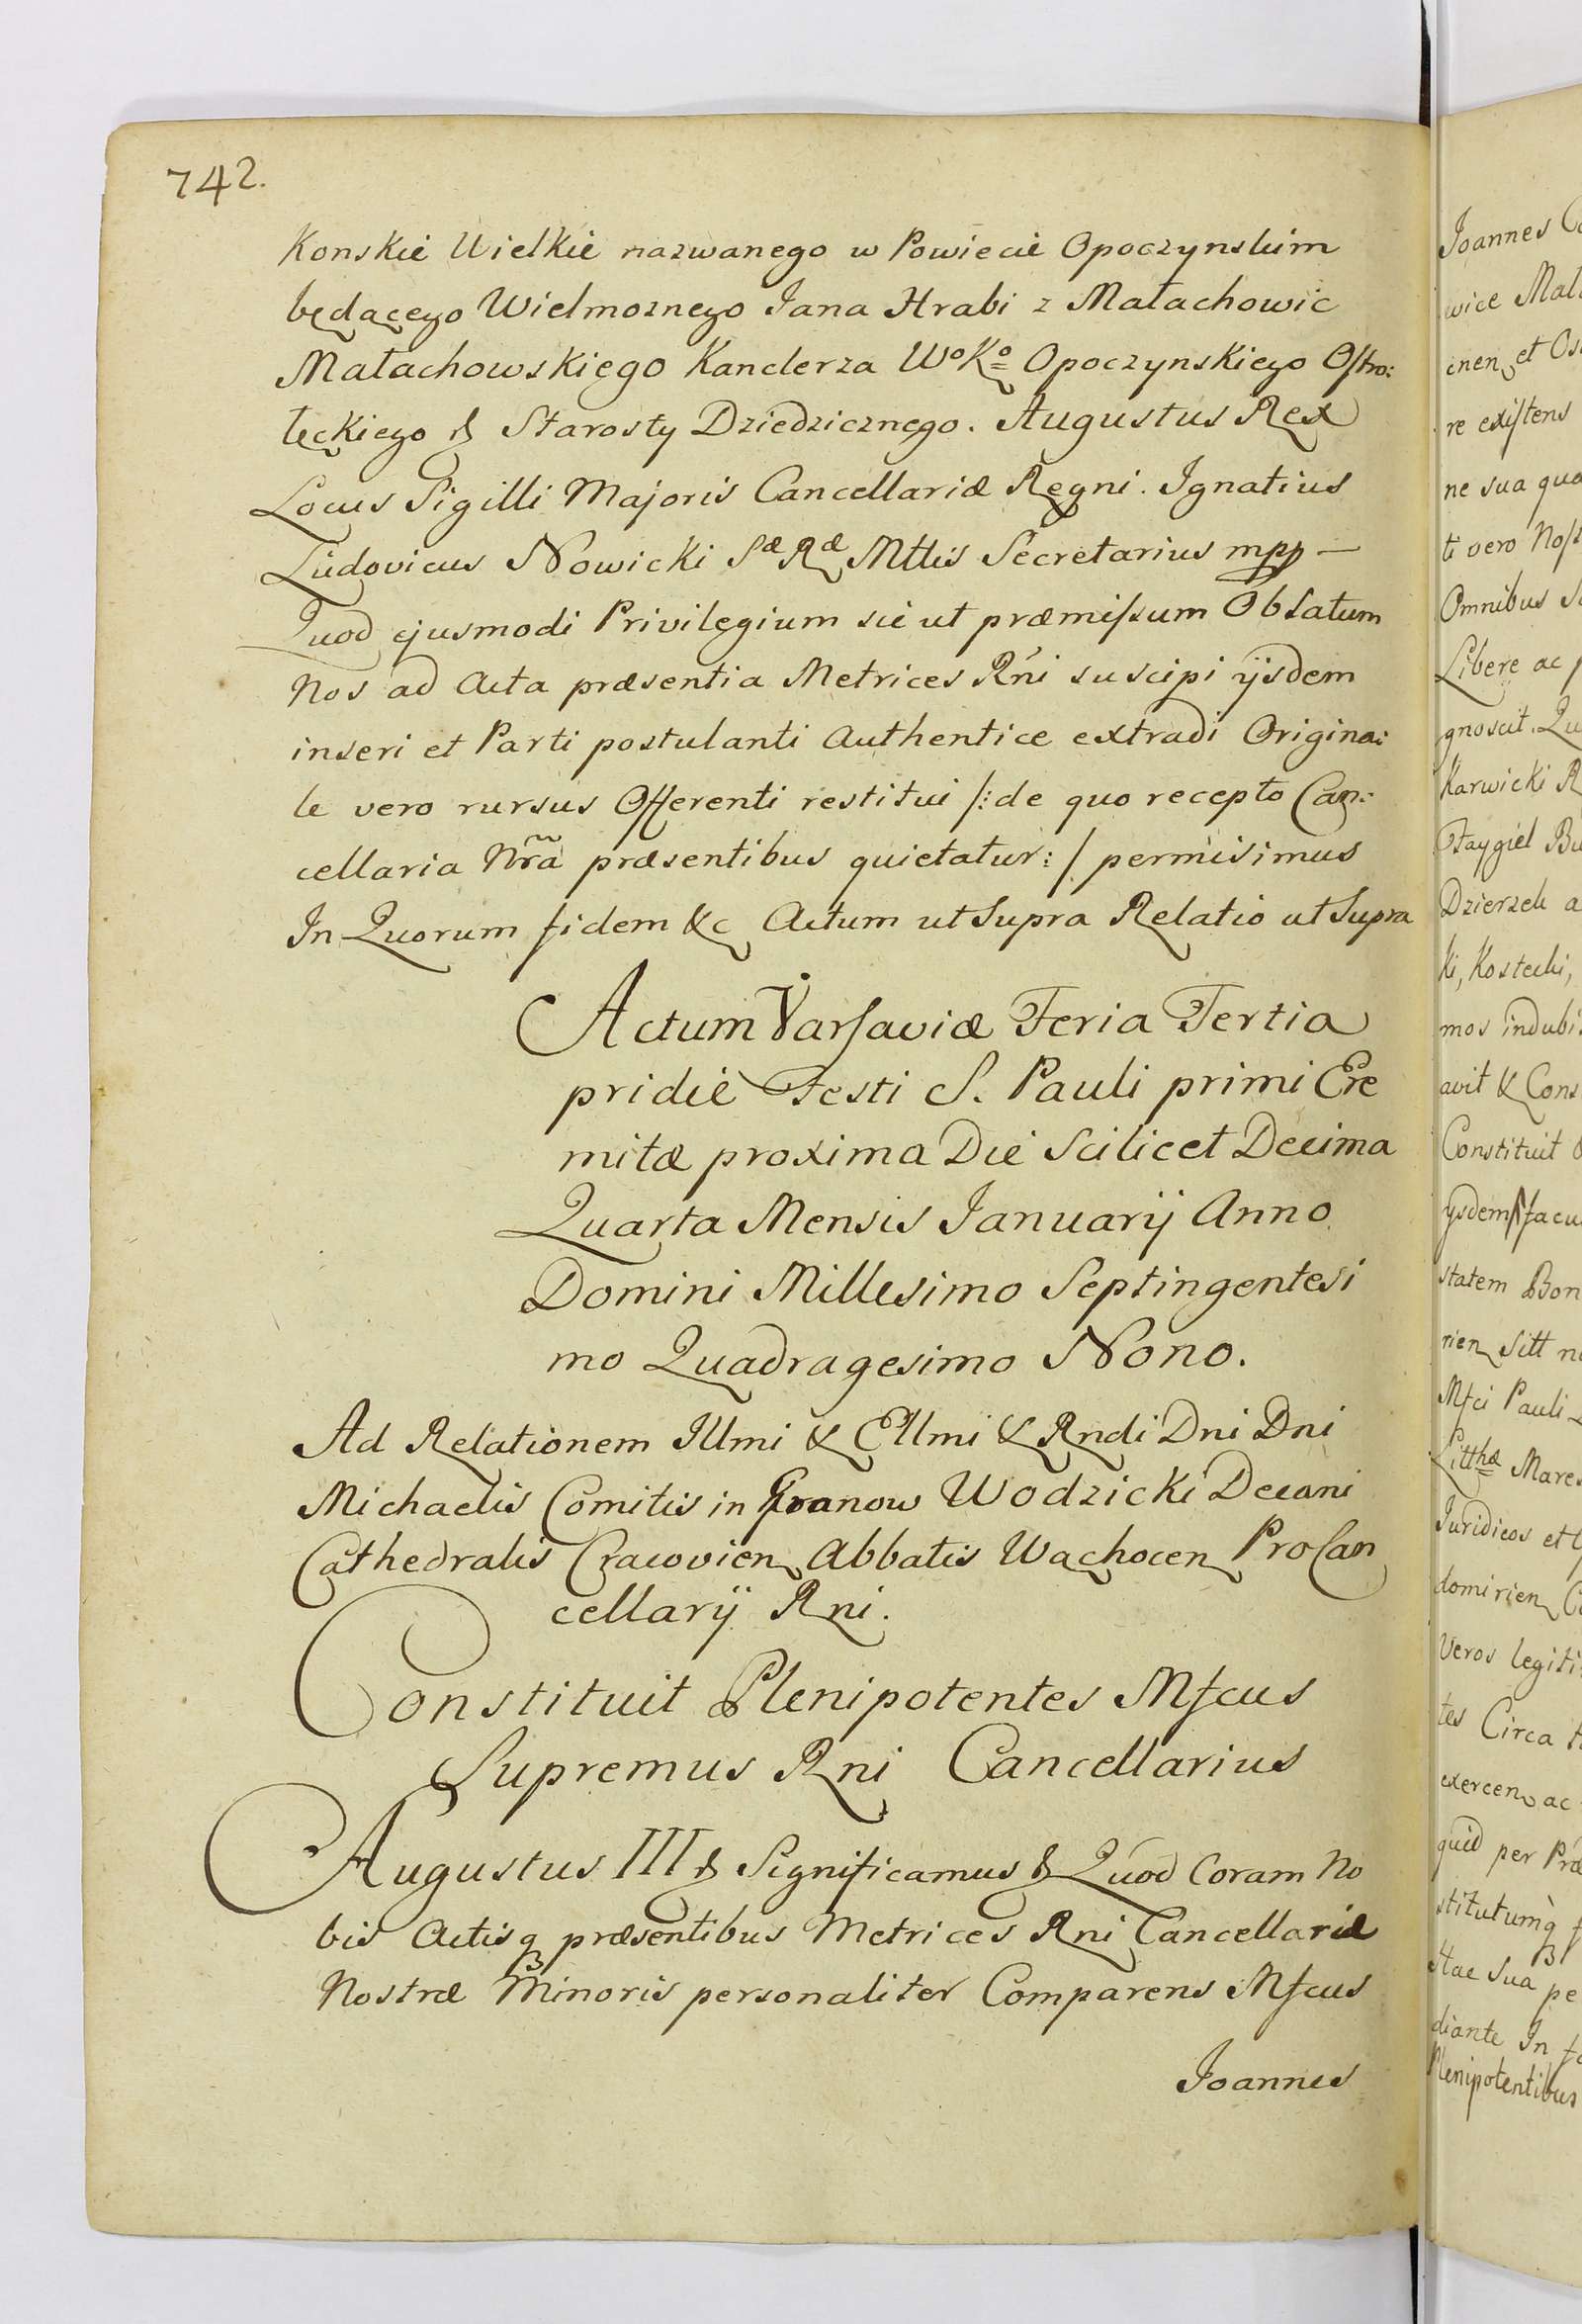 742.
Konskie Wielkie nazwanego w Powiecie Opoczynskim
będącego Wielmoznego Jana Hrabi z Małachowic
Małachowskiego Kanclerza Wo Ko Opoczynskiego Ostro:
łęckiego & Starosty Dziedzicznego. Augustus Rex
Locus Sigilli Majoris Cancellariæ Regni. Ignatius
Ludovicus Nowicki Sæ Ræ Mttis Secretarius mpp —
Quod ejusmodi Privilegium sic ut præmissum Oblatum
Nos ad Acta præsentia Metrices Rni suscipi ijsdem
inseri et Parti postulanti Authentice extradi Origina:
le vero rursus Offerenti restitui /: de quo recepto Can:
cellaria Nrã præsentibus quietatur: / permisimus
In Quorum fidem &c Actum ut Supra Relatio ut Supra
Actum Varsaviæ Feria Tertia
pridie Festi S. Pauli primi Ere
mitæ proxima Die Scilicet Decima
Quarta Mensis Januarij Anno
Domini Millesimo Septingentesi
mo Quadragesimo Nono.
Ad Relationem Illmi & Ellmi & Rndi Dni Dni
Michaelis Comitis in Granow Wodzicki Decani
Cathedralis Cracovien Abbatis Wachocen ProCan
cellarij Rni.
Constituit Plenipotentes Mfcus
Supremus Rni Cancellarius
Augustus III & Significamus & Quod Coram No
bis Actisq præsentibus Metrices Rni Cancellariæ
Nostræ Minoris personaliter Comparens Mfcus
Joannes
Joannes
wice
cnen et
re existens
ne sua
ti vero
Omnibus
Libere ac
gnoscit.
Karwicki
Faygiel
Dzierzek
ki, Kostecki,
mos
avit & Cons
Constituit
ysdem
statem Bon
rien Sitt
Mfci Pauli
Litthæ Mares
Juridicos et
domirien
Veros legiti
tes Circa
exercen ac
quid per
stitutumq
stac Sua pe
diante In
Plenipotentibus